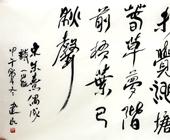 未覺池塘
春草夢階
前梧葉已
秋聲
朱熹偶成
甲午